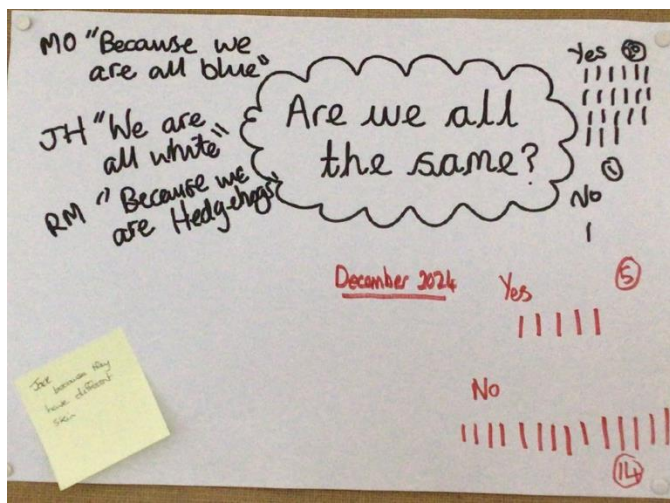 MO "Because we
are all blue"
JH "We are
all white"
RM "Because we
are Hedgehogs"
Are we all
the same?
Yes
No
December 2024
Yes 5
No
14
because they
have different
skin